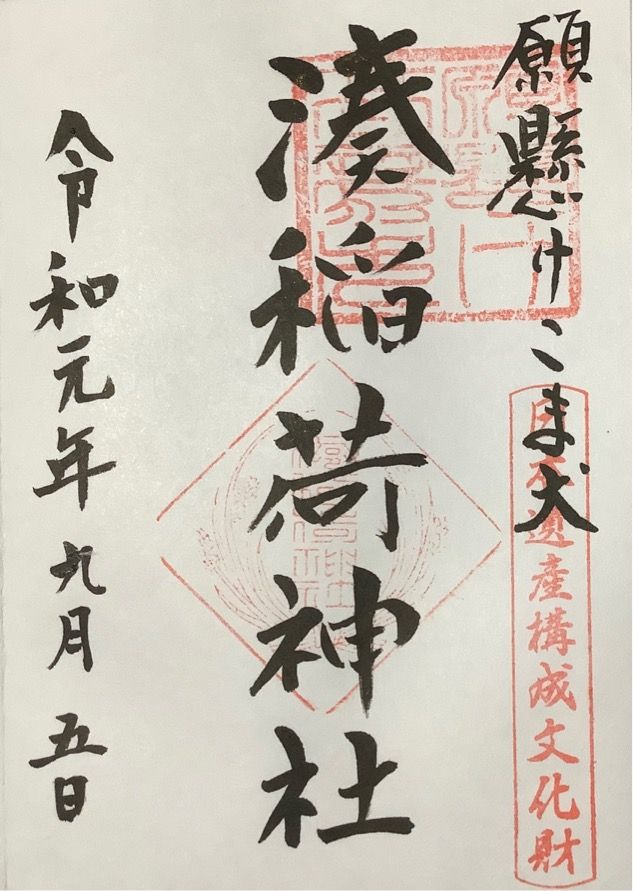 願懸けこま犬
日本遺産構成文化財
湊稲荷神社
令和元年九月五日